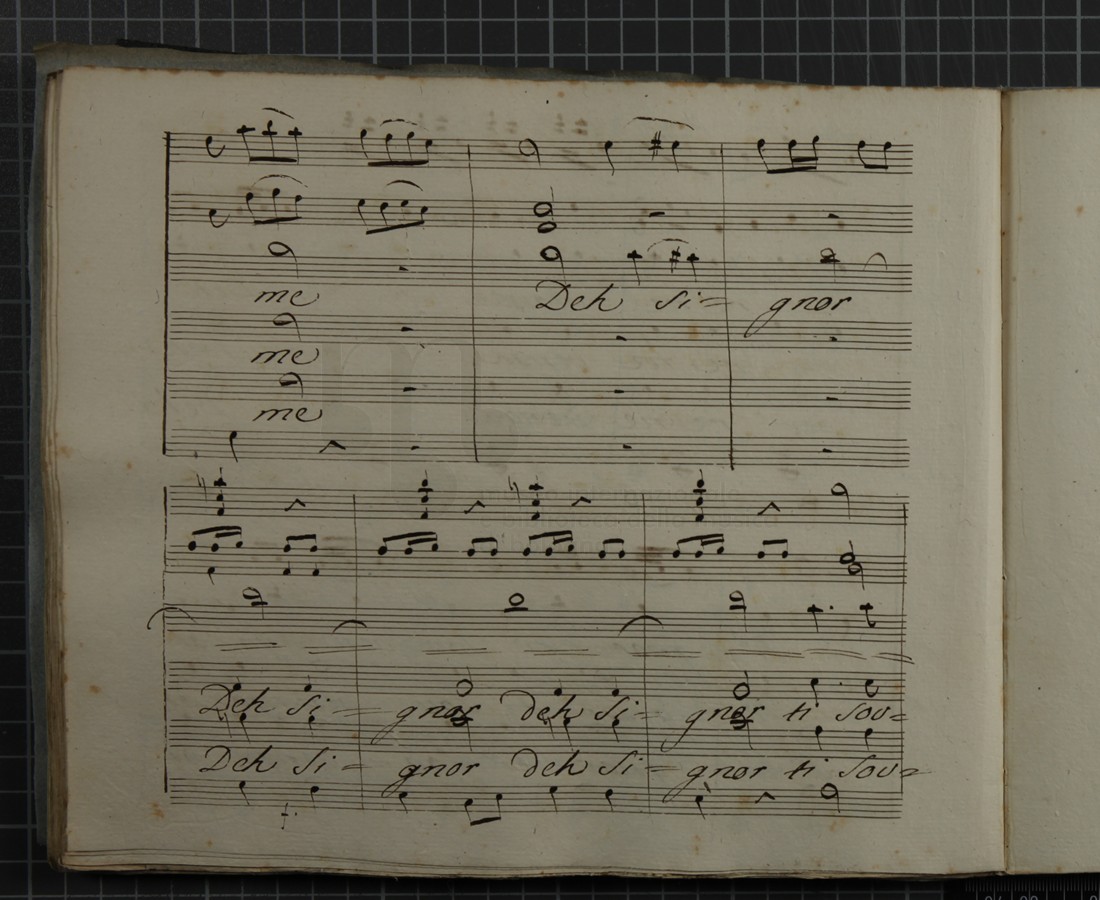 me Deh si= gnor
me
me
Deh si= gnor deh si= gnor ti sov=
Deh si= gnor deh si= gnor ti sov=